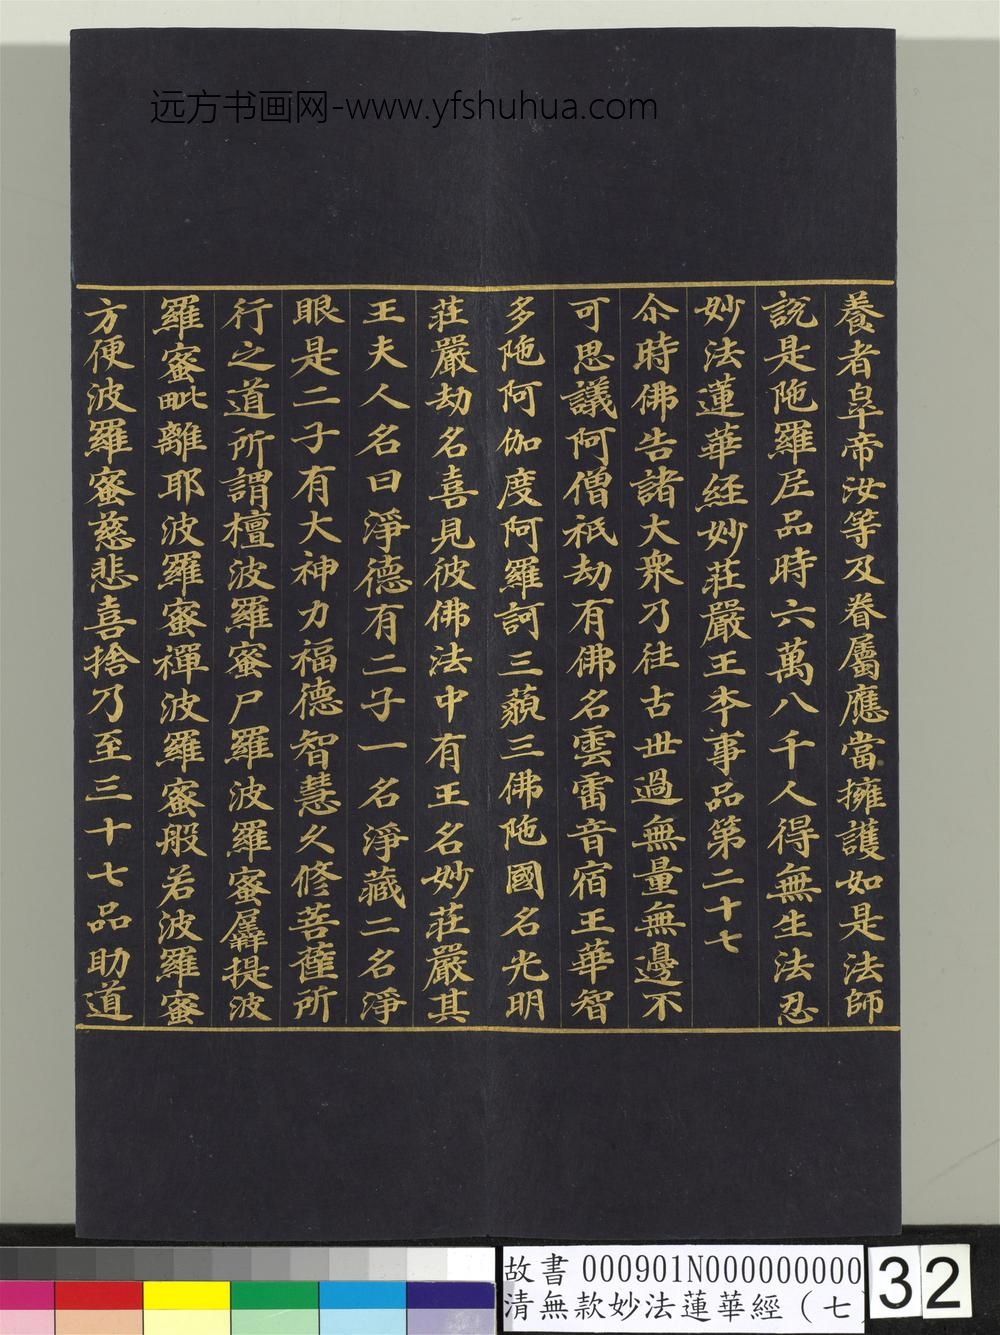 远方书画网-www.yfshuhua.com
養者睾帝汝等及眷屬應當擁護如是法師
說是陁羅尼品時六萬八千人得無生法忍
妙法蓮華經妙莊嚴王夲事品第二十七
尒時佛告諸大衆乃往古世過無量無邊不
可思議阿僧祇劫有佛名雲雷音宿王華智
多陁阿伽度阿羅訶三藐三佛陁國名光明
莊嚴劫名喜見彼佛法中有王名妙莊嚴其
王夫人名曰淨德有二子一名淨藏二名淨
眼是二子有大神力福德智慧久修菩薩所
行之道所謂檀波羅蜜尸羅波羅蜜羼提波
羅蜜毗離耶波羅蜜禪波羅蜜般若波羅蜜
方便波羅蜜慈悲喜捨乃至三十七品助道
故書 000901N000000000
清無款妙法蓮華經（七
32